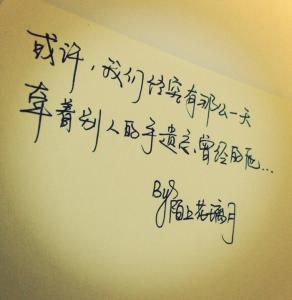 或许，我们终究有那么一天
牵着别人的手遗忘曾经的他...
By：
陌上花璃月